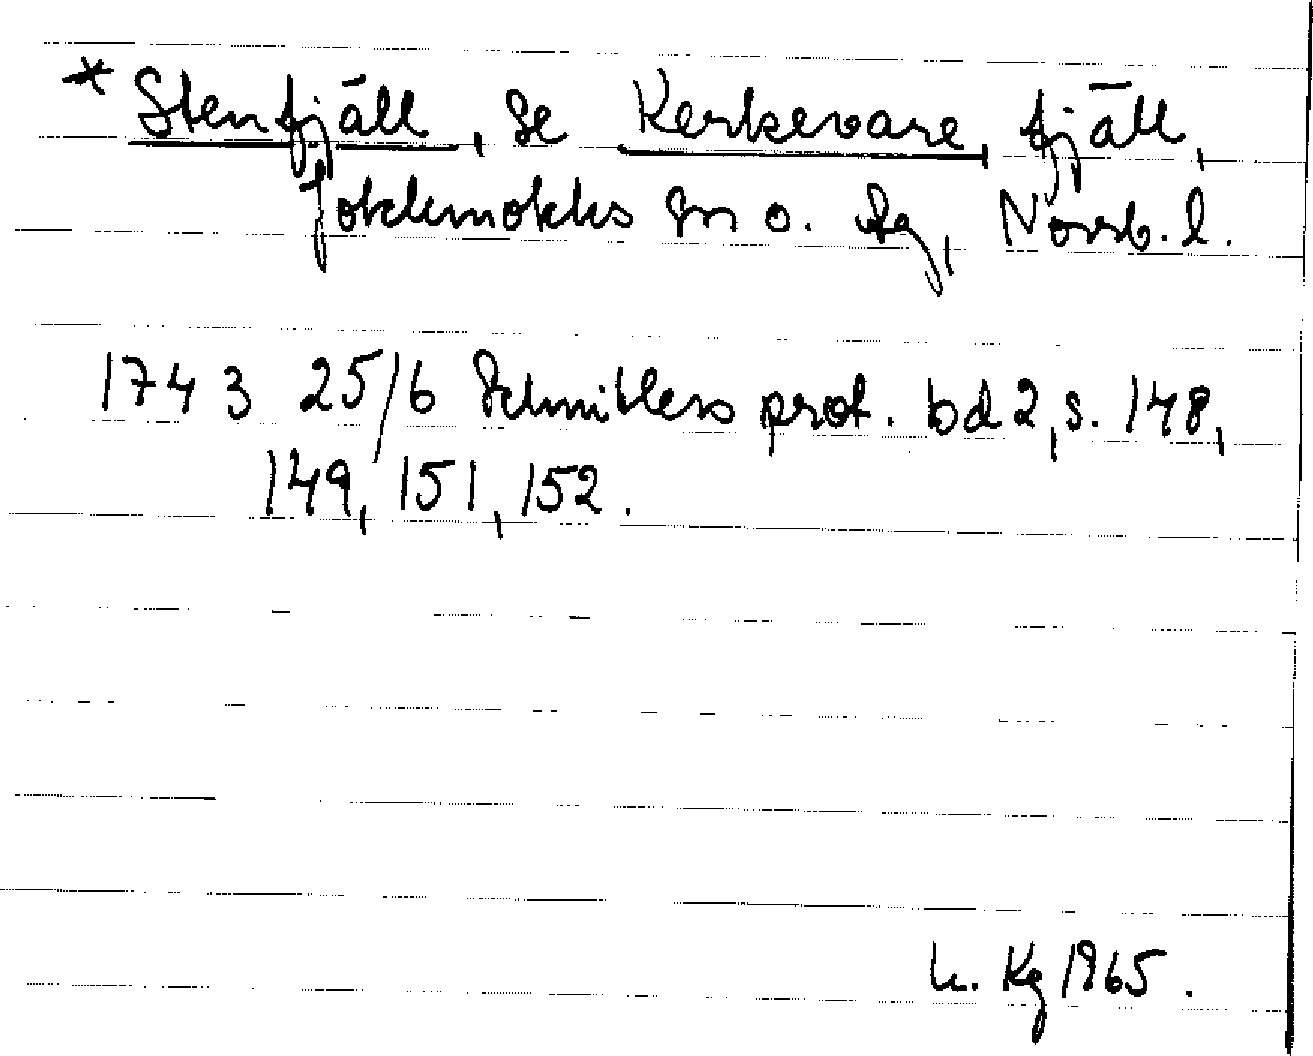 * Stenfjäll, se Kerkevare fjäll,
Jokkmokks sn o. sg, Norrb. l.
1743 25/6 Schnitlers prot. bd 2, s. 148,
149, 151, 152.
Kg 1965.